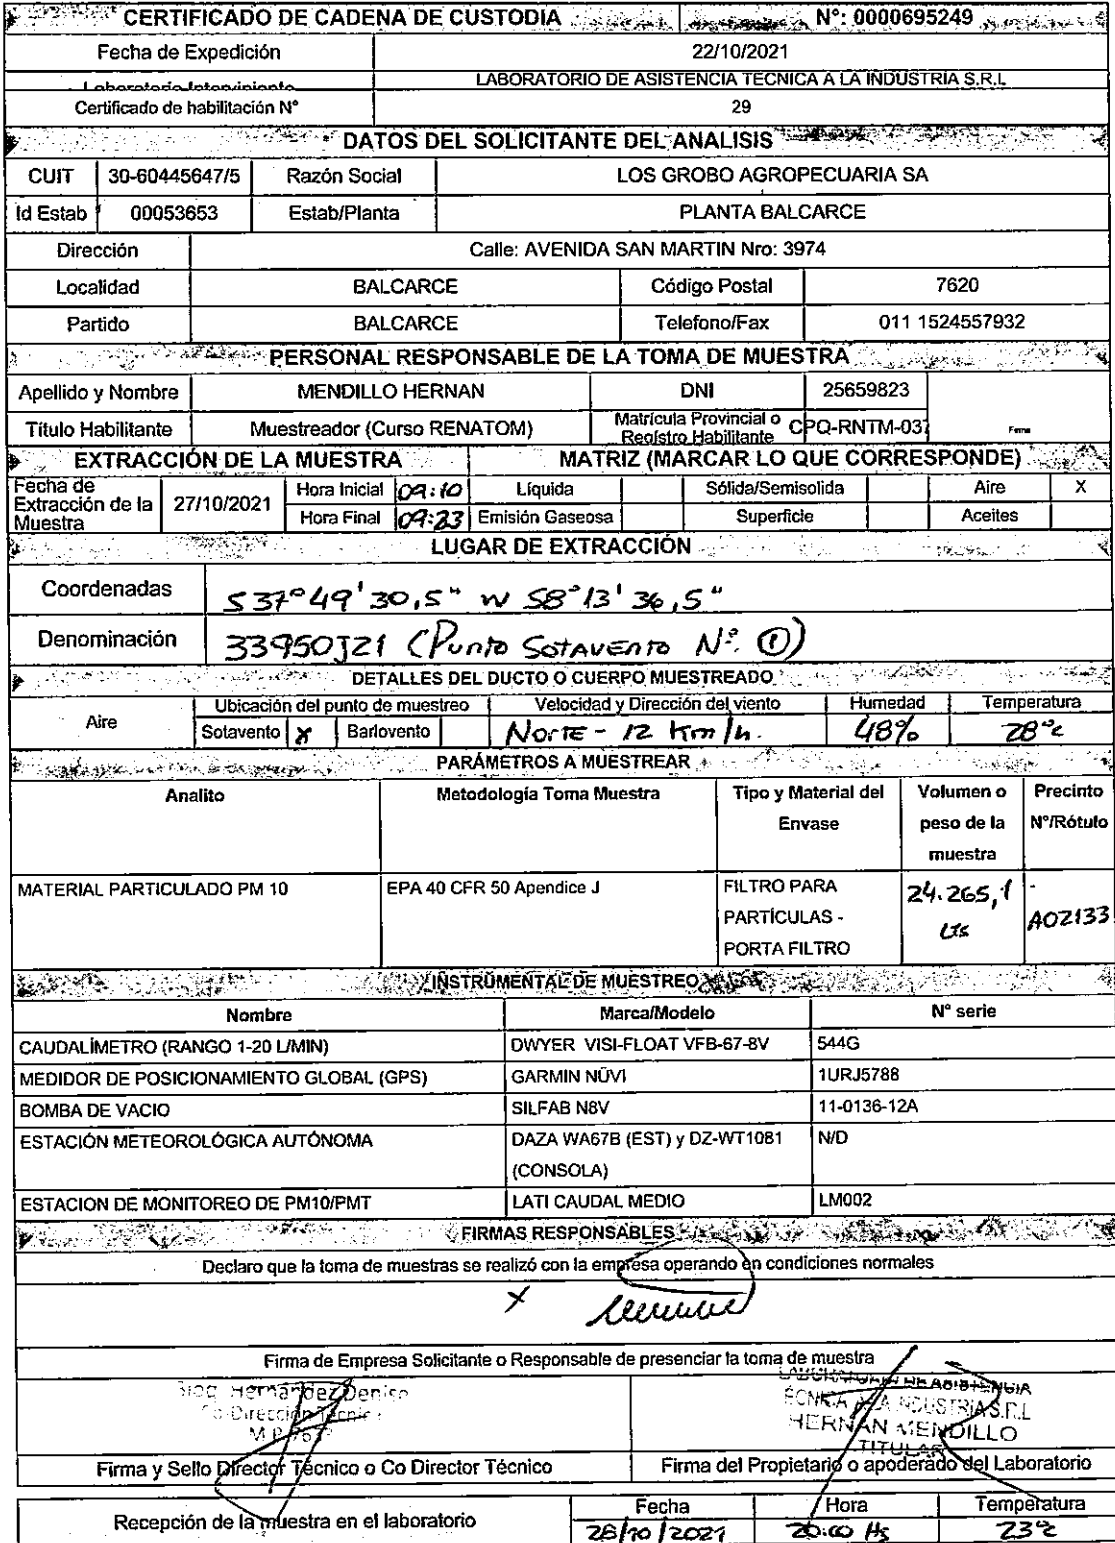 CERTIFICADO DE CADENA DE CUSTODIA N°: 0000695249
Fecha de Expedición 22/10/2021
Laboratorio Interviniente LABORATORIO DE ASISTENCIA TECNICA A LA INDUSTRIA S.R.L
Certificado de habilitación N° 29
DATOS DEL SOLICITANTE DEL ANALISIS
CUIT 30-60445647/5 Razón Social LOS GROBO AGROPECUARIA SA
Id Estab 00053653 Estab/Planta PLANTA BALCARCE
Dirección Calle: AVENIDA SAN MARTIN Nro: 3974
Localidad BALCARCE Código Postal 7620
Partido BALCARCE Telefono/Fax 011 1524557932
PERSONAL RESPONSABLE DE LA TOMA DE MUESTRA
Apellido y Nombre MENDILLO HERNAN DNI 25659823
Título Habilitante Muestreador (Curso RENATOM) Matrícula Provincial o Registro Habilitante CPQ-RNTM-037 Firma
EXTRACCIÓN DE LA MUESTRA MATRIZ (MARCAR LO QUE CORRESPONDE)
Fecha de Extracción de la Muestra 27/10/2021 Hora Inicial 09:10 Líquida Sólida/Semisolida Aire X
Hora Final 09:23 Emisión Gaseosa Superficie Aceites
LUGAR DE EXTRACCIÓN
Coordenadas S 37° 49' 30,5" W 58° 13' 36,5"
Denominación 33950J21 (Punto Sotavento N°: ①)
DETALLES DEL DUCTO O CUERPO MUESTREADO
Aire Ubicación del punto de muestreo Velocidad y Dirección del viento Humedad Temperatura
Sotavento X Barlovento Norte - 12 Km/h. 48% 28°c
PARÁMETROS A MUESTREAR
Analito Metodología Toma Muestra Tipo y Material del Envase Volumen o peso de la muestra Precinto N°/Rótulo
MATERIAL PARTICULADO PM 10 EPA 40 CFR 50 Apendice J FILTRO PARA PARTÍCULAS - PORTA FILTRO 24.265,1 Lts - A02133
INSTRUMENTAL DE MUESTREO
Nombre Marca/Modelo N° serie
CAUDALÍMETRO (RANGO 1-20 L/MIN) DWYER VISI-FLOAT VFB-67-8V 544G
MEDIDOR DE POSICIONAMIENTO GLOBAL (GPS) GARMIN NÜVI 1URJ5788
BOMBA DE VACIO SILFAB N8V 11-0136-12A
ESTACIÓN METEOROLÓGICA AUTÓNOMA DAZA WA67B (EST) y DZ-WT1081 (CONSOLA) N/D
ESTACION DE MONITOREO DE PM10/PMT LATI CAUDAL MEDIO LM002
FIRMAS RESPONSABLES
Declaro que la toma de muestras se realizó con la empresa operando en condiciones normales
X
Firma de Empresa Solicitante o Responsable de presenciar la toma de muestra
Hernández Denise
Co-Dirección Técnica
M.P.
LABORATORIO DE ASISTENCIA
TÉCNICA A LA INDUSTRIA S.R.L
HERNÁN MENDILLO
TITULAR
Firma y Sello Director Técnico o Co Director Técnico Firma del Propietario o apoderado del Laboratorio
Recepción de la muestra en el laboratorio Fecha Hora Temperatura
28/10/2021 20:00 Hs 23°c